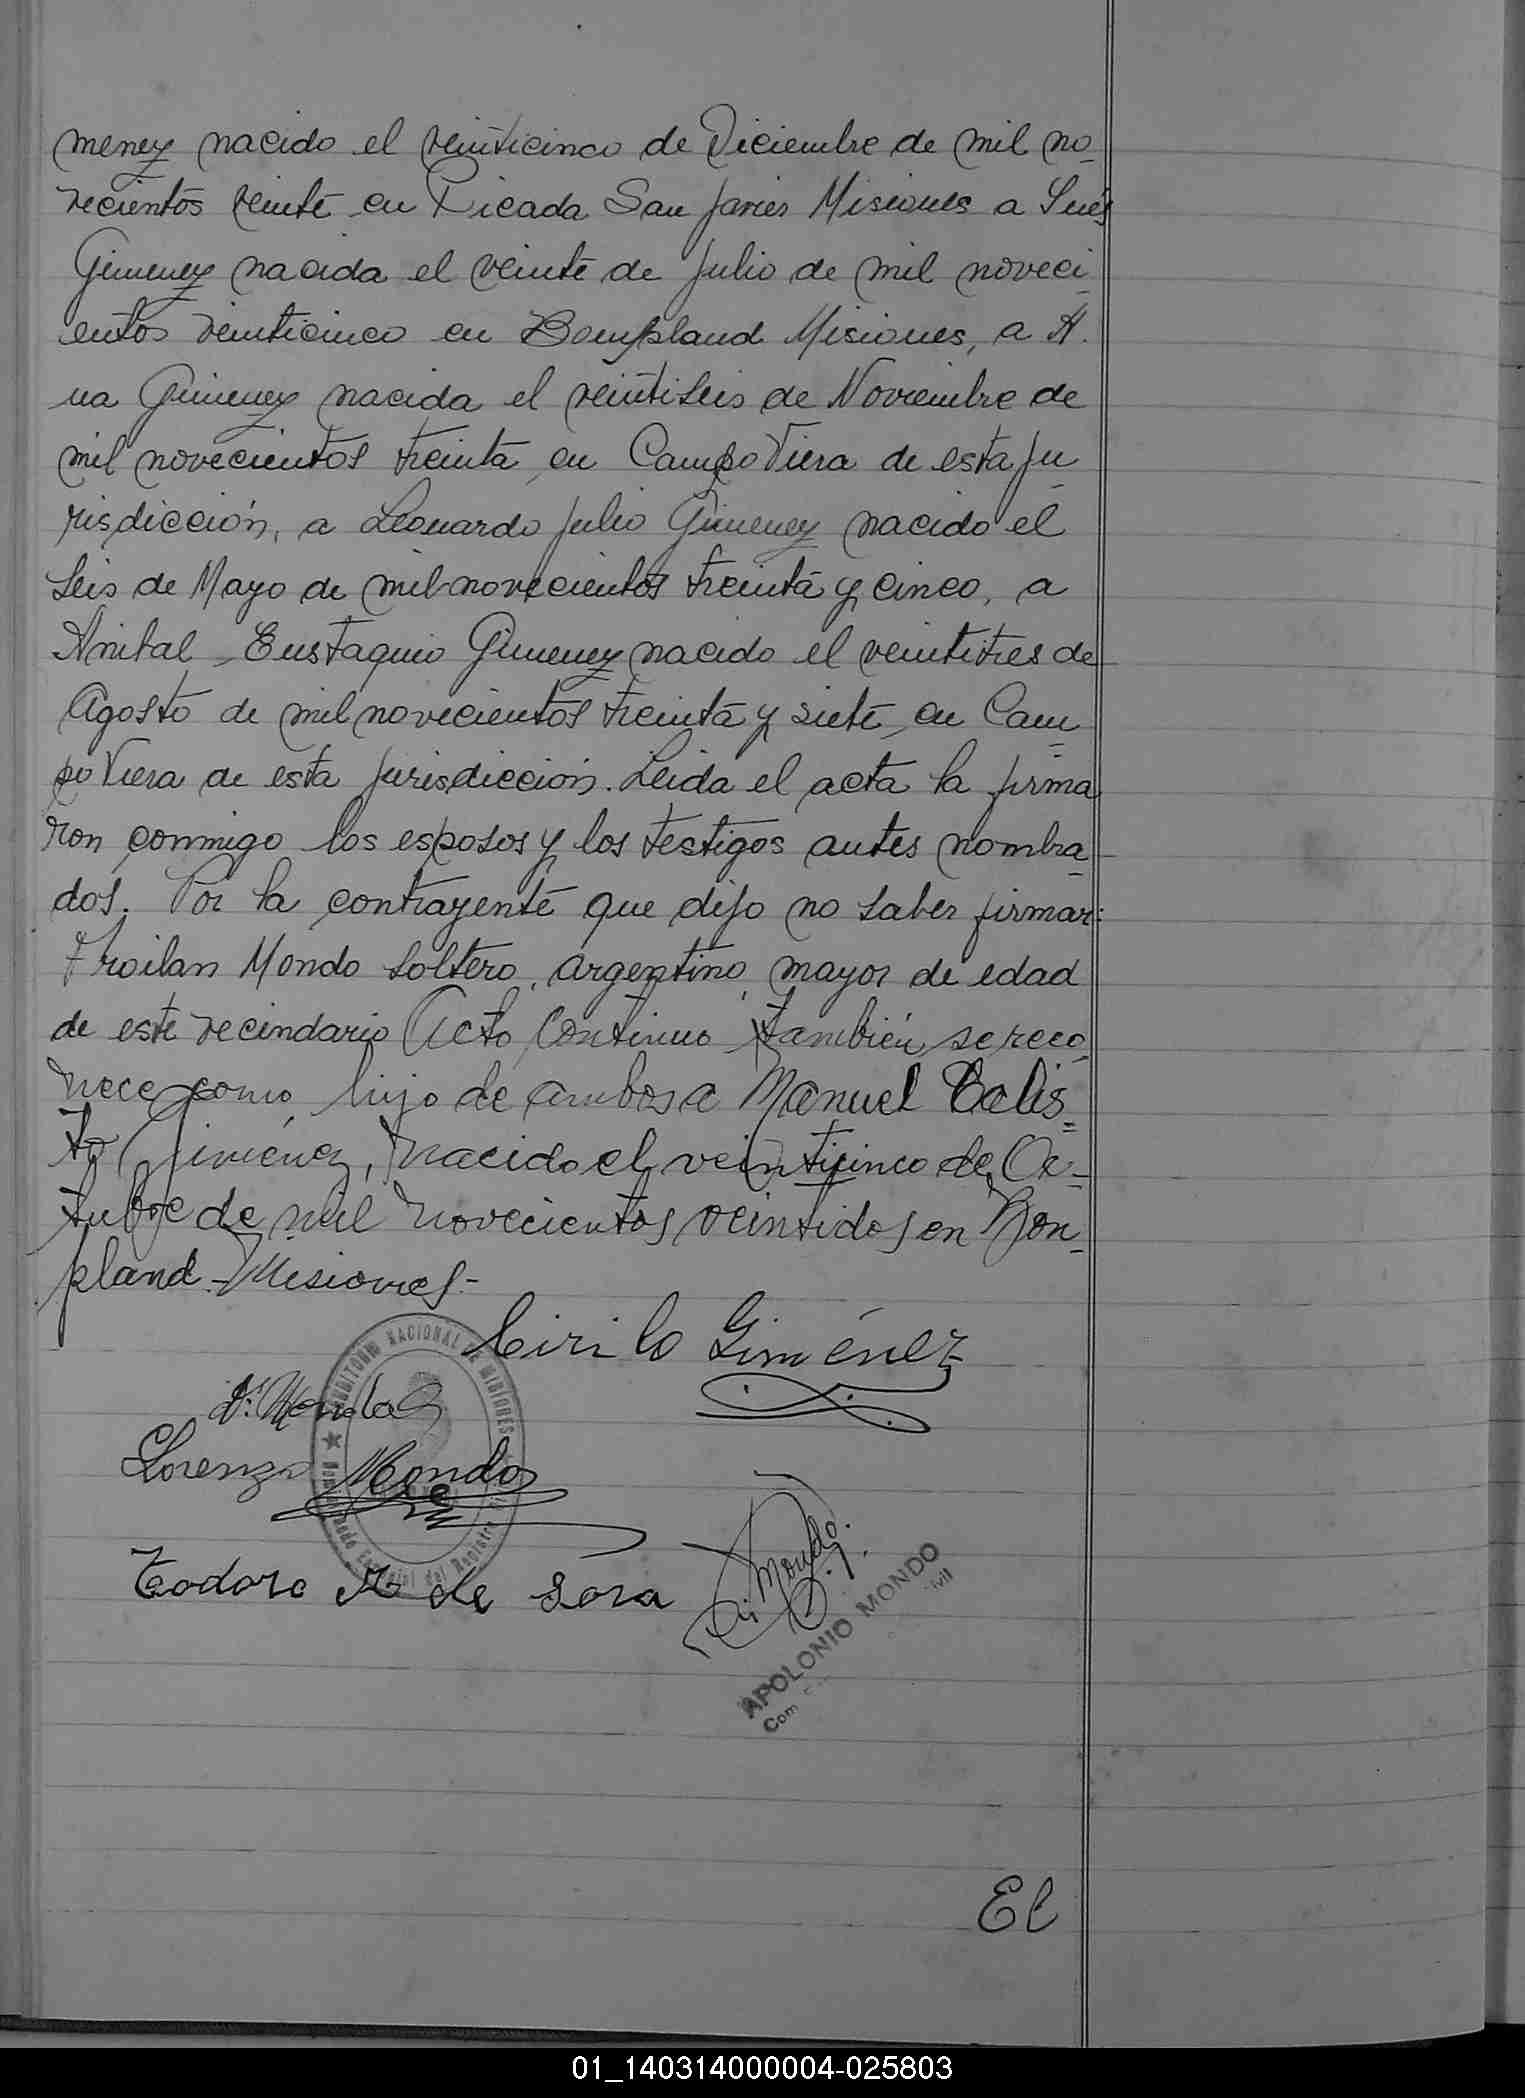 menez nacido el veinticinco de Diciembre de mil no-
vecientos veinte en Picada San Javier Misiones a Inés
Gimenez nacida el veinte de Julio de mil noveci-
entos veinticinco en Bompland Misiones, a A-
na Gimenez nacida el veintiseis de Noviembre de
mil novecientos treinta, en Campo Viera de esta ju-
risdicción, a Leonardo Julio Gimenez nacido el
seis de Mayo de mil novecientos treinta y cinco, a
Anibal Eustaquio Gimenez nacido el veintitres de
Agosto de mil novecientos treinta y siete, en Cam-
po Viera de esta jurisdicción. Leida el acta la firma
ron conmigo los esposos y los testigos antes nombra-
dos. Por la contrayente que dijo no saber firmar:
Froilan Mondo soltero, argentino, mayor de edad
de este vecindario Acto continuo también se reco-
nece como hijo de ambos a Manuel Calis-
to Jiménez, nacido el veinticinco de Oc-
tubre de mil novecientos veintidos en Bon-
pland - Misiones -
Cirilo Giménez
Lorenzo Mondo
Teodoro R de Sosa
Mondo
APOLONIO MONDO
El
01_140314000004-025803